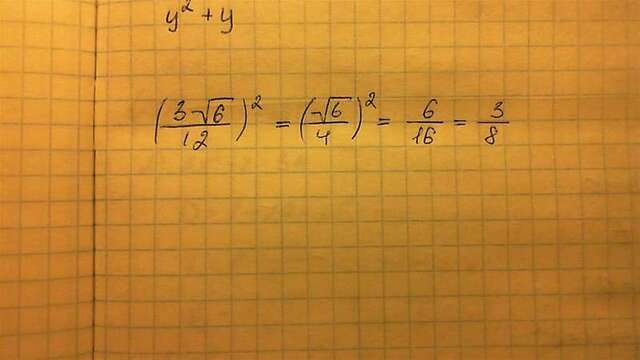 y² + y
(3√6/12)² = (√6/4)² = 6/16 = 3/8